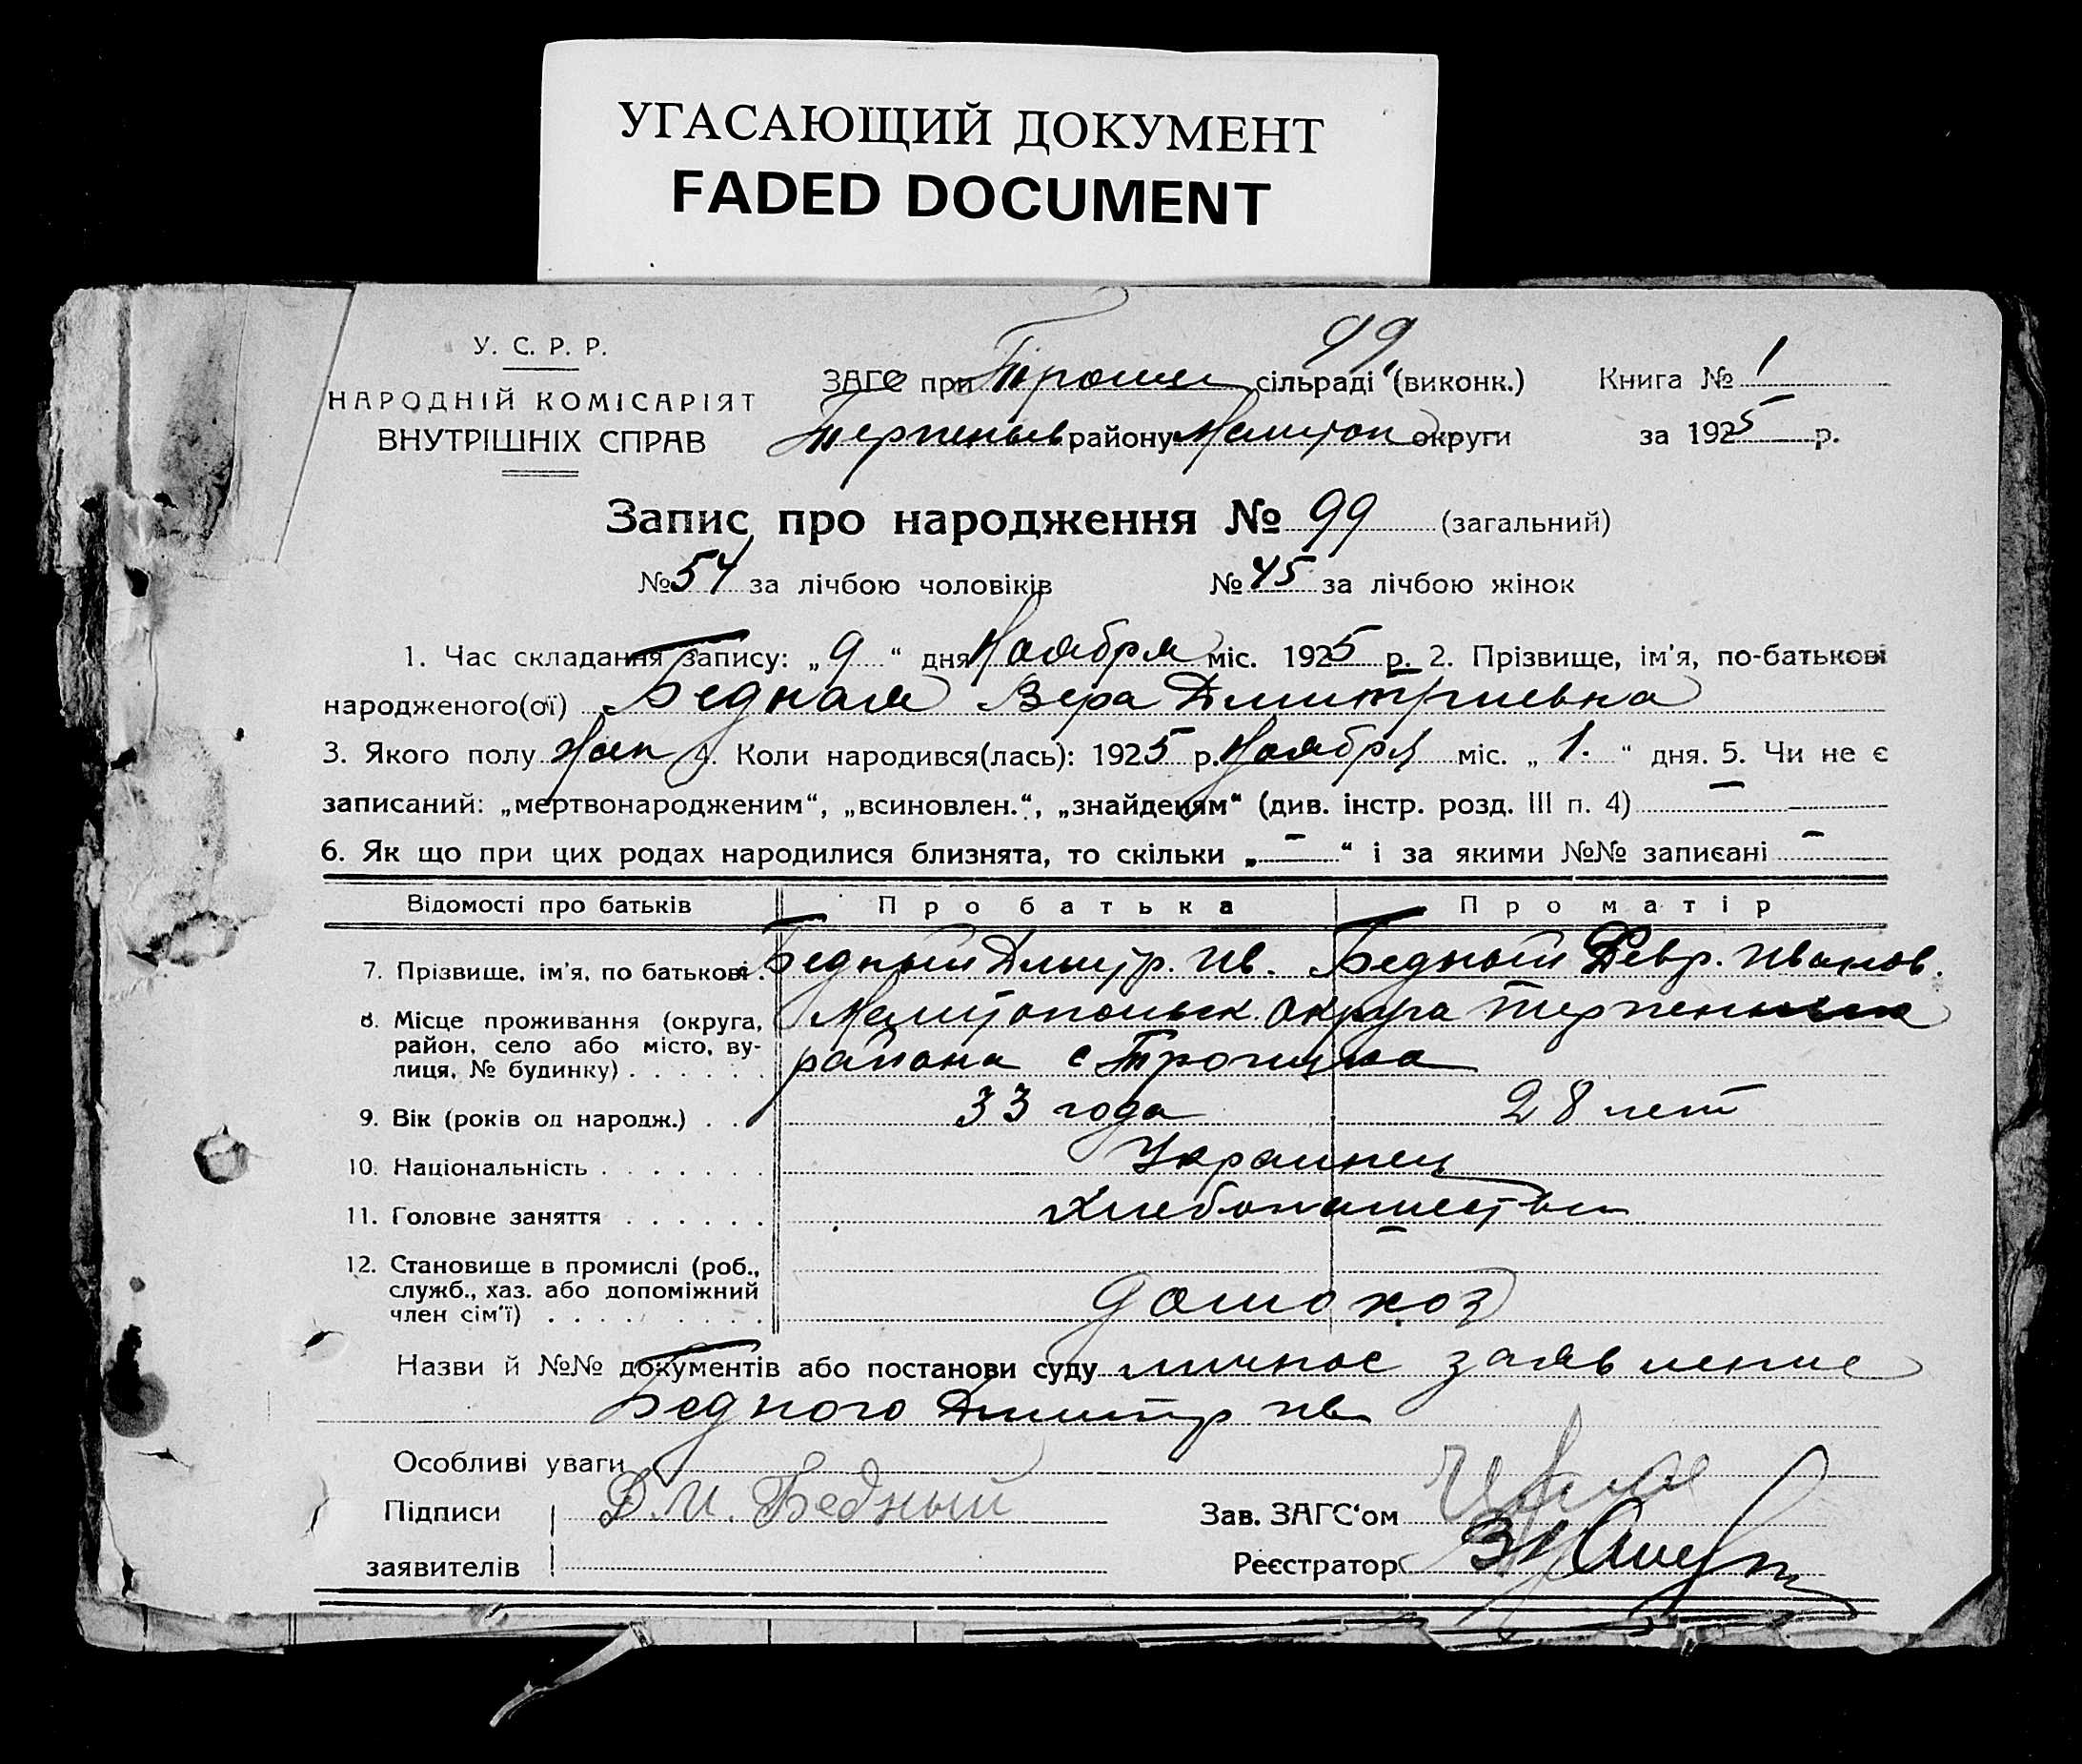 УГАСАЮЩИЙ ДОКУМЕНТ
FADED DOCUMENT
99
У. С. Р. Р.
НАРОДНІЙ КОМІСАРІЯТ
ВНУТРІШНІХ СПРАВ
ЗАГС при Троицк сільраді (виконк.)
Терпеньев району Мелитоп округи
Книга № 1
за 1925 р.
Запис про народження № 99 (загальний)
№ 54 за лічбою чоловіків № 45 за лічбою жінок
1. Час складання запису: „9“ дня Ноября міс. 1925 р. 2. Прізвище, ім'я, по-батькові
народженого(ої) Бедная Вера Дмитриевна
3. Якого полу жен 4. Коли народився(лась): 1925 р. Ноября міс. „1.“ дня. 5. Чи не є
записаний: „мертвонародженим“, „всиновлен.“, „знайденим“ (див. інстр. розд. III п. 4) —
6. Як що при цих родах народилися близнята, то скільки „—“ і за якими №№ записані —
Відомості про батьків Про батька Про матір
7. Прізвище, ім'я, по батькові. Бедный Дмитр. Ив. Бедной Февр. Иванов.
8. Місце проживання (округа, район, село або місто, вулиця, № будинку) Мелитопольск. округа Терпеньевка
района с Троицка
9. Вік (років од народж.) 33 года 28 лет
10. Національність Украинец
11. Головне заняття Хлебопашество
12. Становище в промислі (роб.,
служб., хаз. або допоміжний
член сім'ї) домохоз
Назви й №№ документів або постанови суду личное заявление
Бедного Дмитр Ив
Особливі уваги
Підписи Д. И. Бедный Зав. ЗАГС'ом
заявителів Реєстратор